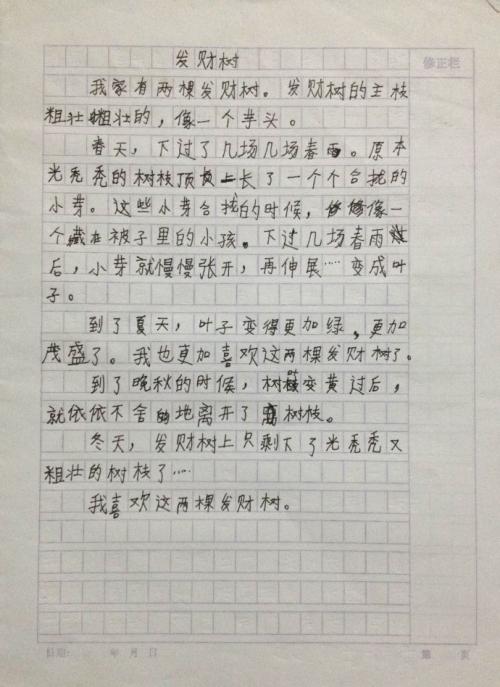 发财树
修正栏
我家有两棵发财树。发财树的主枝
粗壮粗壮的，像一个芋头。
春天，下过了几场几场春雨。原本
光秃秃的树枝顶上长了一个个合拢的
小芽。这些小芽合拢的时候，像一
个藏在被子里的小孩。下过几场春雨
后，小芽就慢慢张开，再伸展……变成叶
子。
到了夏天，叶子变得更加绿，更加
茂盛了。我也更加喜欢这两棵发财树了。
到了晚秋的时候，树叶变黄过后，
就依依不舍的地离开了树枝。
冬天，发财树上只剩下了光秃秃又
粗壮的树枝了……
我喜欢这两棵发财树。
日期： 年 月 日
第 页